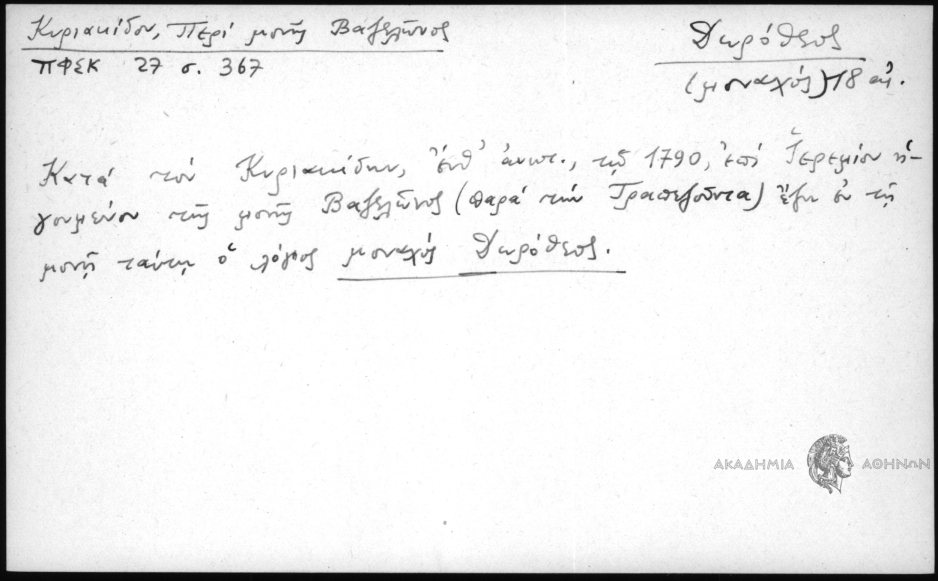 Κυριακίδου, Περί μονῆς Βαζελῶνος
ΠΦΣΚ 27 σ. 367
Δωρόθεος
(μοναχός) 18 αἰ.
Κατά τόν Κυριακίδην, ἔνθ' ἀνωτ., τῷ 1790, ἐπί Ἱερεμίου ἡ-
γουμένου τῆς μονῆς Βαζελῶνος (παρά τήν Τραπεζοῦντα) ἔζη ἐν τῇ
μονῇ ταύτῃ ὁ λόγιος μοναχός Δωρόθεος.
ΑΚΑΔΗΜΙΑ ΑΘΗΝΩΝ